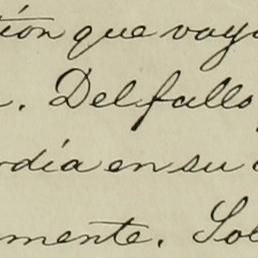 ción que vaya
. Del fallo
rdia en su
mente. Sol